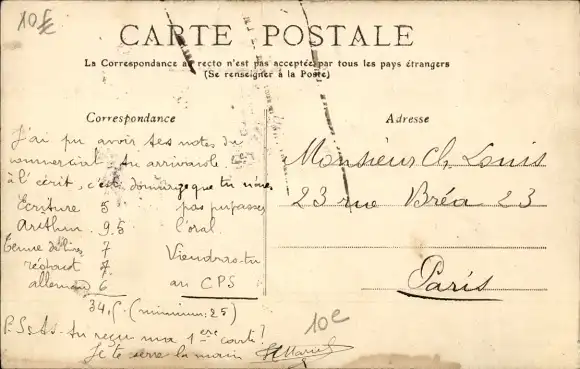 10 €
CARTE POSTALE
La Correspondance au recto n'est pas acceptée par tous les pays étrangers
(Se renseigner à la Poste)
Correspondance
J'ai pu avoir tes notes du
commercial. Tu arrivas
à l'écrit, c'est dommage que tu n'aies
Ecriture 5 pas pu passer
Arithm. 9.5 l'oral.
Tenue de livres 7 Viendras-tu
7 au CPS
allemand 6
34,5 (minimum: 25)
P.S. As-tu reçu ma 1ere carte?
Je te serre la main
10e
Adresse
Monsieur Ch. Louis
23 rue Bréa 23
Paris